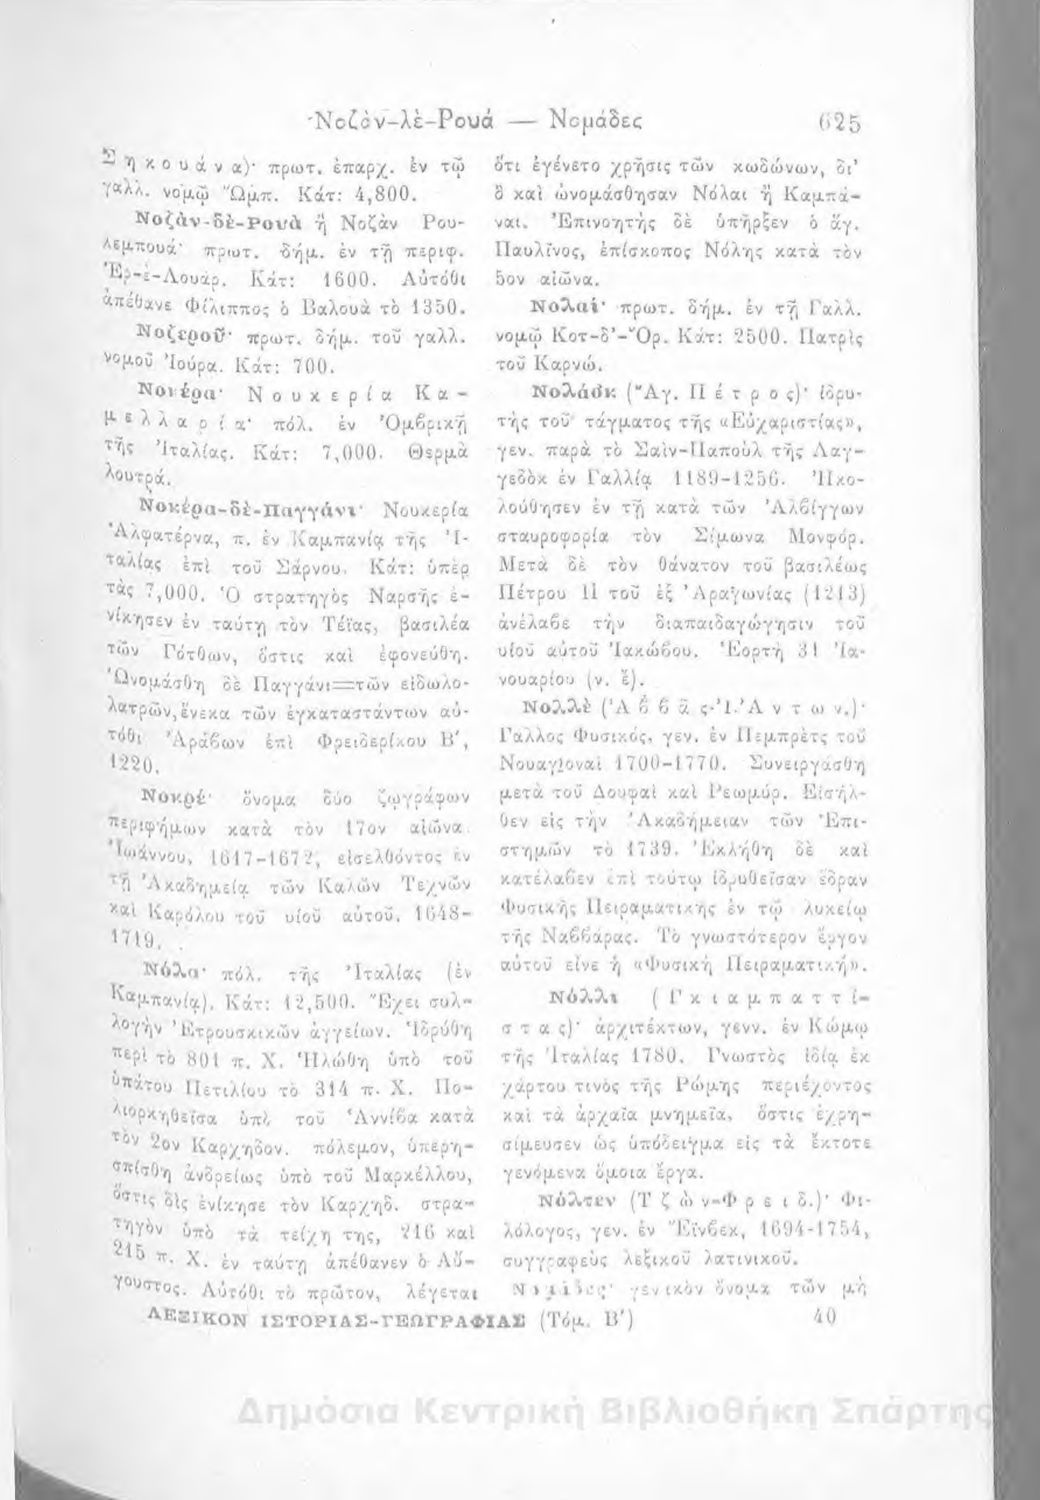 Νοζὰν-λὲ-Ρουά — Νομάδες 625
Σηκουάνα)· πρωτ. ἐπαρχ. ἐν τῷ
γαλλ. νομῷ Ὤμπ. Κάτ: 4,800.
Νοζὰν-δὲ-Ρουὰ ἢ Νοζὰν Ρου-
λεμπουά· πρωτ. δήμ. ἐν τῇ περιφ.
Ἒρ-ἒ-Λουάρ. Κάτ: 1600. Αὐτόθι
ἀπέθανε Φίλιππος ὁ Βαλουὰ τὸ 1350.
Νοζεροῦ· πρωτ. δήμ. τοῦ γαλλ.
νομοῦ Ἰούρα. Κάτ: 700.
Νοκέρα· Νουκερία Κα-
μελλαρία· πόλ. ἐν Ὀμβρικῇ
τῆς Ἰταλίας. Κάτ: 7,000. Θερμὰ
λουτρά.
Νοκέρα-δὲ-Παγγάνι· Νουκερία
Ἀλφατέρνα, π. ἐν Καμπανίᾳ τῆς Ἰ-
ταλίας ἐπὶ τοῦ Σάρνου. Κάτ: ὑπὲρ
τὰς 7,000. Ὁ στρατηγὸς Ναρσῆς ἐ-
νίκησεν ἐν ταύτῃ τὸν Τέϊας, βασιλέα
τῶν Γότθων, ὅστις καὶ ἐφονεύθη.
Ὠνομάσθη δὲ Παγγάνι=τῶν εἰδωλο-
λατρῶν, ἕνεκα τῶν ἐγκαταστάντων αὐ-
τόθι Ἀράβων ἐπὶ Φρειδερίκου Β΄,
1220.
Νοκρέ· ὄνομα δύο ζωγράφων
περιφήμων κατὰ τὸν 17ον αἰῶνα
Ἰωάννου, 1617-1672, εἰσελθόντος ἐν
τῇ Ἀκαδημείᾳ τῶν Καλῶν Τεχνῶν
καὶ Καρόλου τοῦ υἱοῦ αὐτοῦ, 1648-
1719.
Νόλα· πόλ. τῆς Ἰταλίας (ἐν
Καμπανίᾳ). Κάτ: 12,500. Ἔχει συλ-
λογὴν Ἐτρουσκικῶν ἀγγείων. Ἱδρύθη
περὶ τὸ 801 π. Χ. Ἡλώθη ὑπὸ τοῦ
ὑπάτου Πετιλίου τὸ 314 π. Χ. Πο-
λιορκηθεῖσα ὑπὸ τοῦ Ἀννίβα κατὰ
τὸν 2ον Καρχηδον. πόλεμον, ὑπερη-
σπίσθη ἀνδρείως ὑπὸ τοῦ Μαρκέλλου,
ὅστις δὶς ἐνίκησε τὸν Καρχηδ. στρα-
τηγὸν ὑπὸ τὰ τείχη της, 216 καὶ
215 π. Χ. ἐν ταύτῃ ἀπέθανεν ὁ Αὔ-
γουστος. Αὐτόθι τὸ πρῶτον, λέγεται
ὅτι ἐγένετο χρῆσις τῶν κωδώνων, δι᾽
ὃ καὶ ὠνομάσθησαν Νόλαι ἢ Καμπά-
ναι. Ἐπινοητὴς δὲ ὑπῆρξεν ὁ ἅγ.
Παυλῖνος, ἐπίσκοπος Νόλης κατὰ τὸν
5ον αἰῶνα.
Νολαί· πρωτ. δήμ. ἐν τῇ Γαλλ.
νομῷ Κοτ-δ᾽-Ὄρ. Κάτ: 2500. Πατρὶς
τοῦ Καρνώ.
Νολάσκ (Ἅγ. Πέτρος)· ἱδρυ-
τὴς τοῦ τάγματος τῆς «Εὐχαριστίας»,
γεν. παρὰ τὸ Σαὶν-Παποὺλ τῆς Λαγ-
γεδὸκ ἐν Γαλλίᾳ 1189-1256. Ἠκο-
λούθησεν ἐν τῇ κατὰ τῶν Ἀλβίγγων
σταυροφορίᾳ τὸν Σίμωνα Μονφόρ.
Μετὰ δὲ τὸν θάνατον τοῦ βασιλέως
Πέτρου ΙΙ τοῦ ἐξ Ἀραγωνίας (1213)
ἀνέλαβε τὴν διαπαιδαγώγησιν τοῦ
υἱοῦ αὐτοῦ Ἰακώβου. Ἑορτὴ 31 Ἰα-
νουαρίου (ν. ἔ).
Νολλὲ (Ἀββᾶς-Ἰ. Ἀντων.)·
Γάλλος Φυσικός, γεν. ἐν Πεμπρὲτς τοῦ
Νουαγιοναὶ 1700-1770. Συνειργάσθη
μετὰ τοῦ Δουφαὶ καὶ Ρεωμύρ. Εἰσῆλ-
θεν εἰς τὴν Ἀκαδήμειαν τῶν Ἐπι-
στημῶν τὸ 1739. Ἐκλήθη δὲ καὶ
κατέλαβεν ἐπὶ τούτῳ ἱδρυθεῖσαν ἕδραν
Φυσικῆς Πειραματικῆς ἐν τῷ λυκείῳ
τῆς Ναββάρας. Τὸ γνωστότερον ἔργον
αὐτοῦ εἶνε ἡ «Φυσικὴ Πειραματική».
Νόλλι (Γκιαμπαττί-
στας)· ἀρχιτέκτων, γενν. ἐν Κώμῳ
τῆς Ἰταλίας 1780. Γνωστὸς ἰδίᾳ ἐκ
χάρτου τινὸς τῆς Ρώμης περιέχοντος
καὶ τὰ ἀρχαῖα μνημεῖα, ὅστις ἐχρη-
σίμευσεν ὡς ὑπόδειγμα εἰς τὰ ἔκτοτε
γενόμενα ὅμοια ἔργα.
Νόλτεν (Τζὼν-Φρειδ.)· Φι-
λόλογος, γεν. ἐν Ἔϊνβεκ, 1694-1754,
συγγραφεὺς λεξικοῦ λατινικοῦ.
Νομάδες· γενικὸν ὄνομα τῶν μὴ
ΛΕΞΙΚΟΝ ΙΣΤΟΡΙΑΣ-ΓΕΩΓΡΑΦΙΑΣ (Τόμ. Β΄) 40
Δημόσια Κεντρική Βιβλιοθήκη Σπάρτης